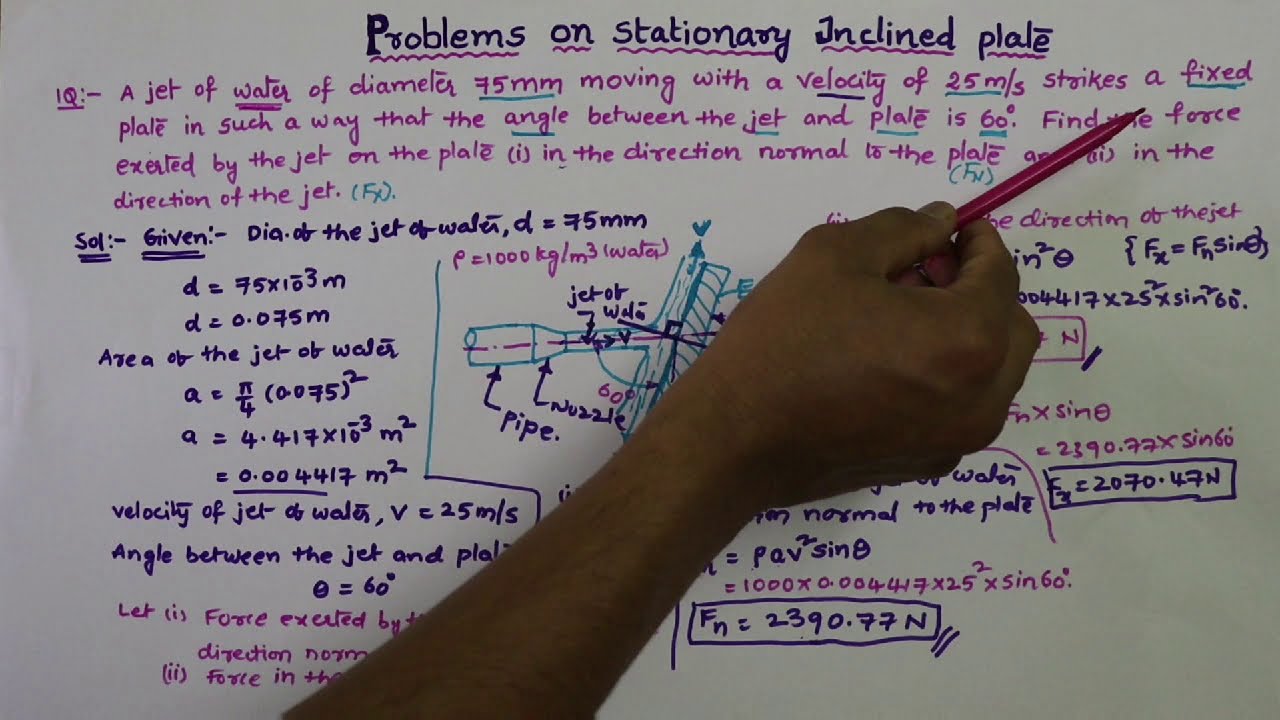 Problems on Stationary Inclined plate
1Q:- A jet of water of diameter 75mm moving with a velocity of 25m/s strikes a fixed
plate in such a way that the angle between the jet and plate is 60°. Find the force
exerted by the jet on the plate (i) in the direction normal to the plate (ii) in the
(Fn)
direction of the jet. (Fx).
Sol:- Given:- Dia. of the jet of water, d = 75mm
d = 75×10⁻³m
d = 0.075m
Area of the jet of water
a = π/4 (0.075)²
a = 4.417×10⁻³ m²
= 0.004417 m²
velocity of jet of water, V = 25m/s
Angle between the jet and plate
θ = 60°
Let (i) Force exerted by
direction
(ii) Force in the
ρ = 1000 kg/m³ (water)
jet of
V
V
60°
Nozzle
pipe.
of water
normal to the plate
= ρav²sinθ
= 1000×0.004417×25²×sin60°.
Fn = 2390.77N
the direction of the jet
sin²θ {Fx = Fn sinθ}
004417×25²×sin²60°.
N
Fn×sinθ
= 2390.77×sin60
Fx = 2070.47N